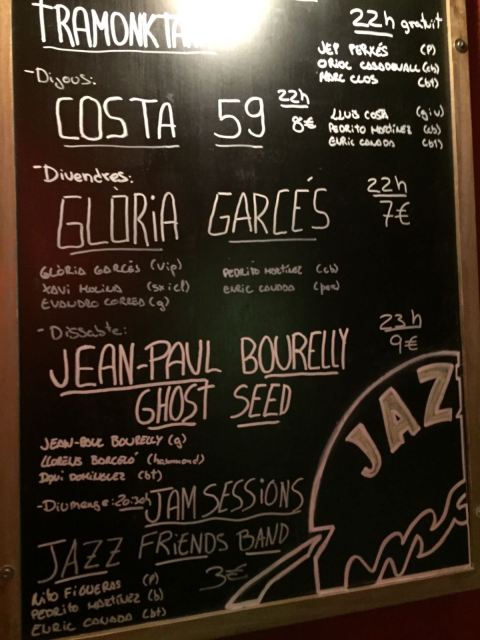 22h gratuït
JEP PERXÉS (P)
(cb)
MARC CLOS (bt)
-Dijous:
COSTA 59 22h
8€
LLUÍS COSTA (g i v)
PEDRITO MARTÍNEZ (cb)
ENRIC CANADA (bt)
-Divendres:
GLÒRIA GARCÉS 22h
7€
GLÒRIA GARCÉS
PEDRITO MARTÍNEZ (cb)
XAVI MOLINA
ENRIC CANADA
EVANDRO CORREA (g)
-Dissabte:
23h
9€
JEAN-PAUL BOURELLY
GHOST SEED
JEAN-PAUL BOURELLY (g)
(hammond)
DAVI DOMÍNGUEZ (bt)
-Diumenge: 20:30h JAM SESSIONS
JAZZ FRIENDS BAND
3€
NITO FIGUERAS (P)
PEDRITO MARTÍNEZ (b)
ENRIC CANADA (bt)
JAZ